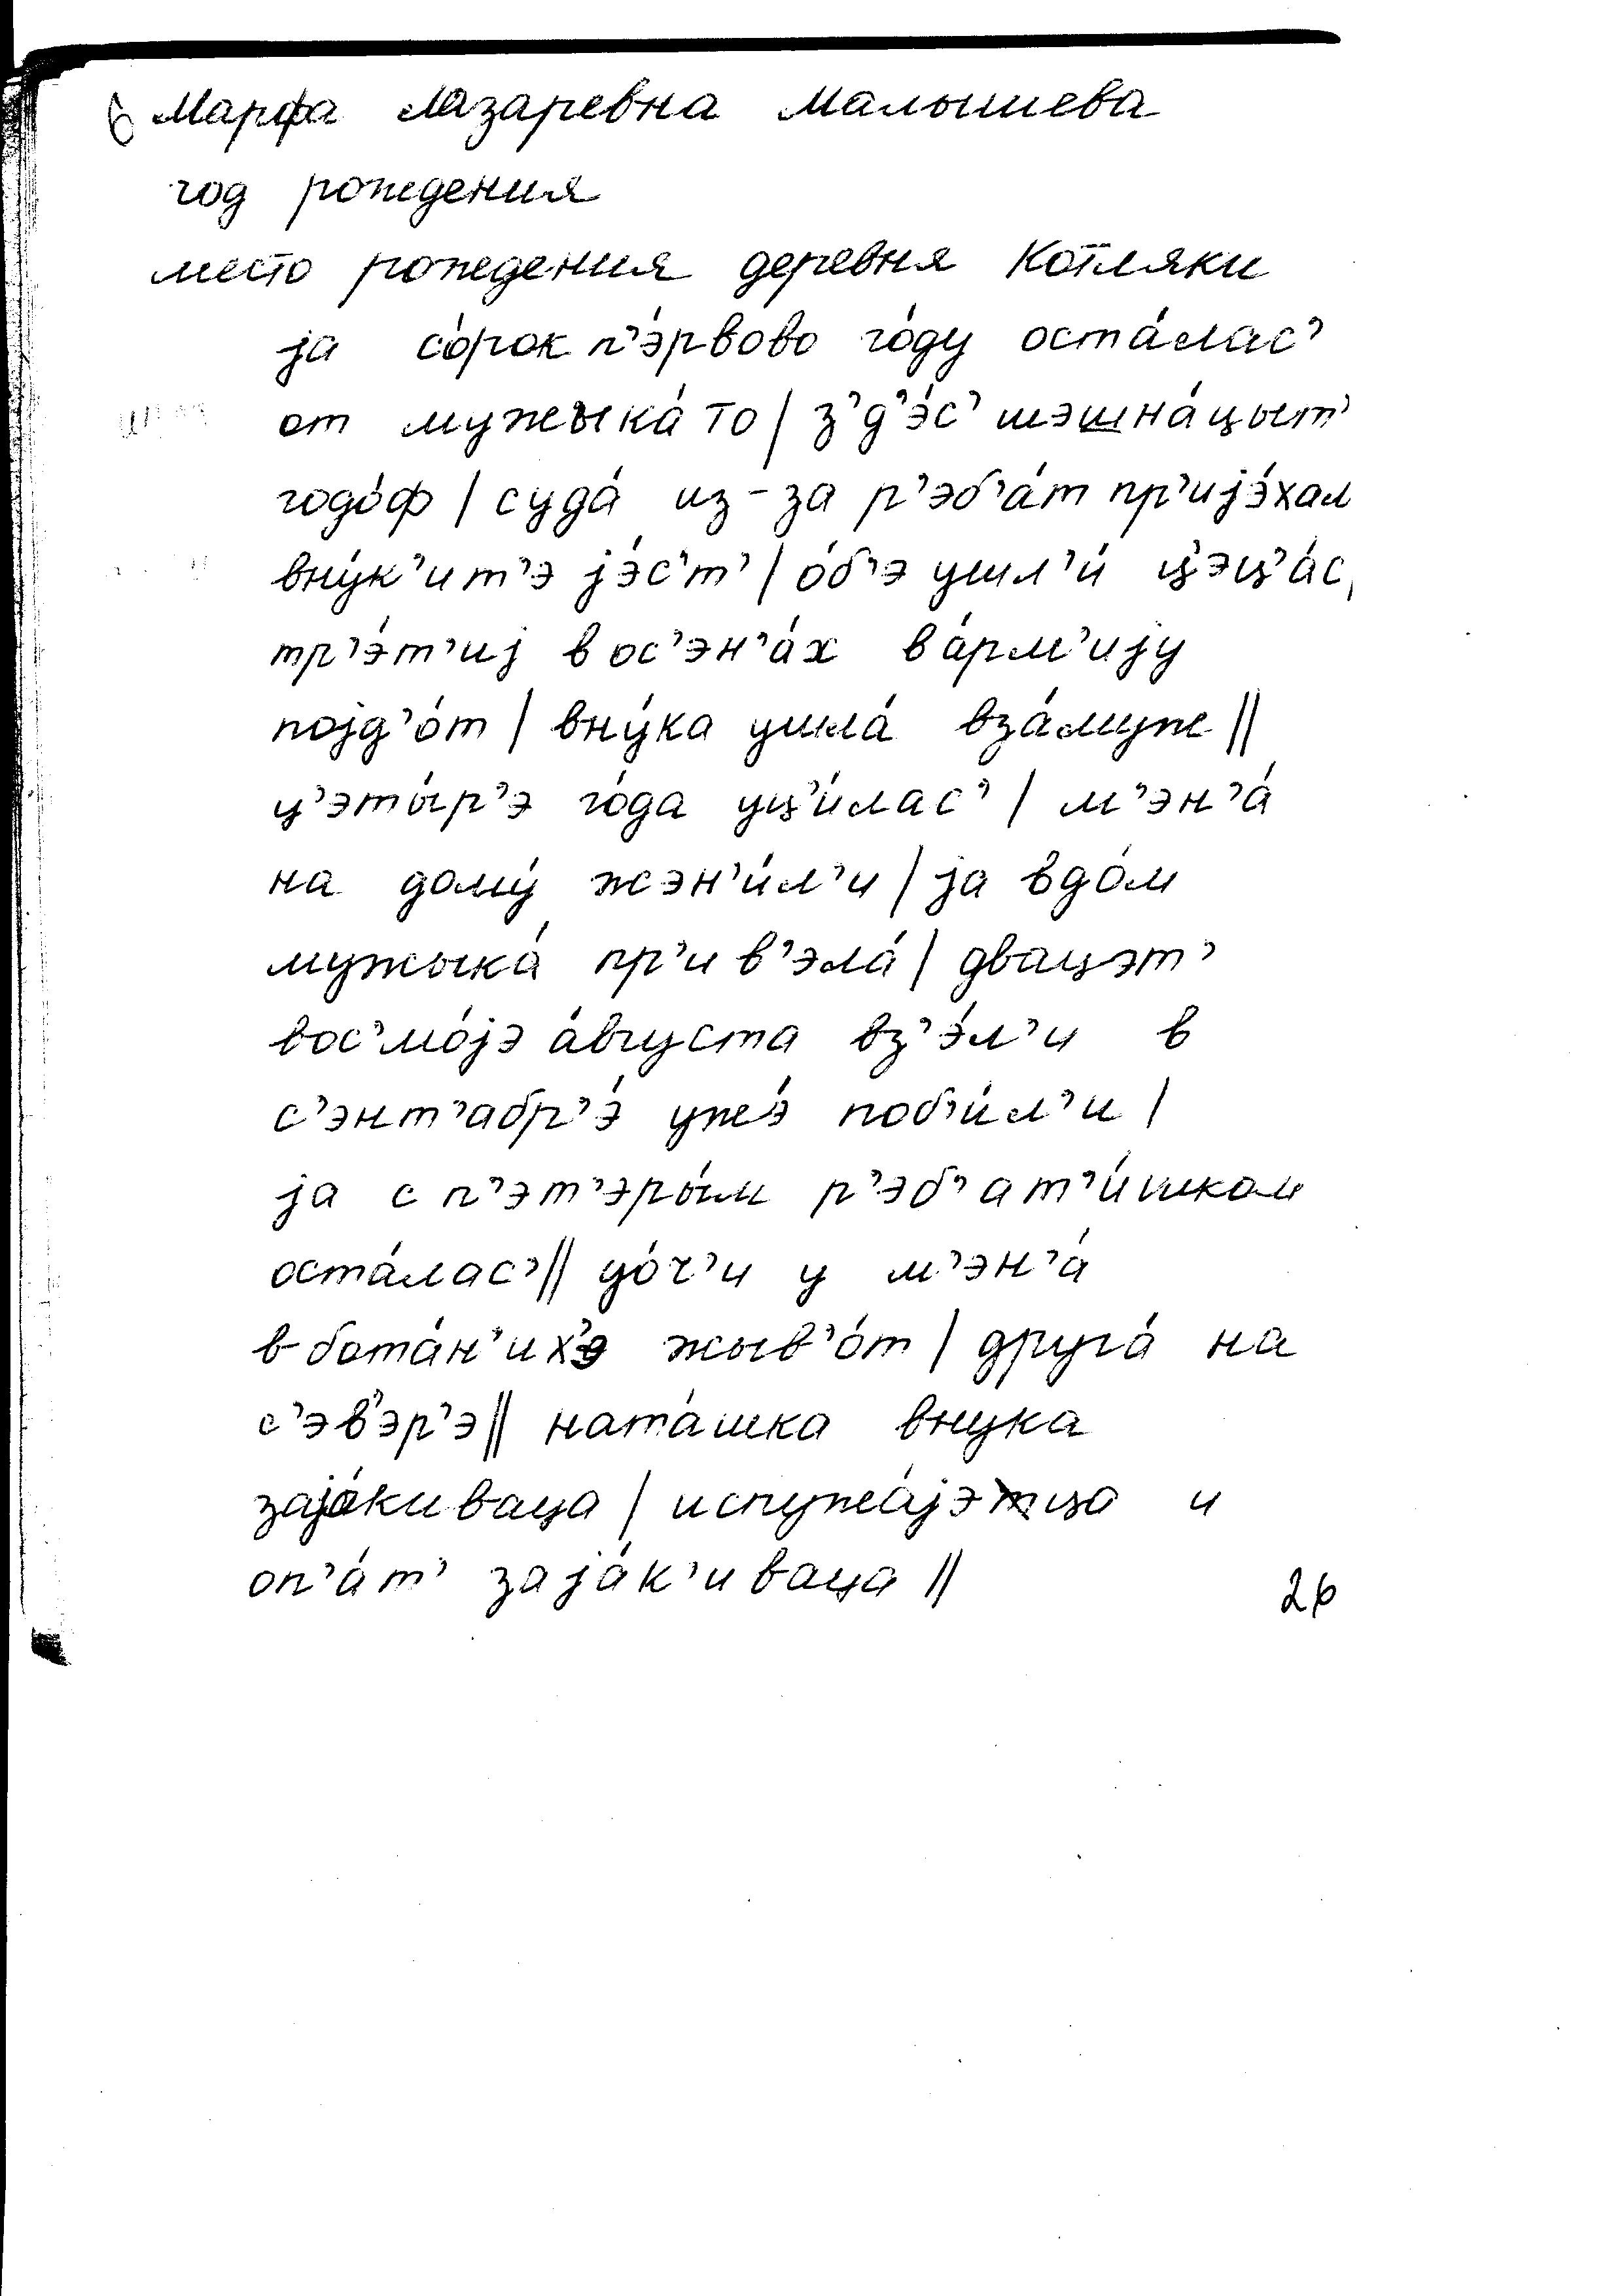 Марфа Лазаревна Малышева
год рождения
место рождения деревня Котляки
ja со́рок п’э́рвово го́ду оста́лас’
от мужыка́ то | з’д’э́с’ шэшна́цыт’
годо́ф | суда́ из-за р’эб’а́т пр’иjэ́хал
вну́к’ит’э jэ́с’т’ | о́б’э ушл’и́ ц’эц’а́с,
тр’э́т’иj в ос’эн’а́х ва́рм’иjу
поjд’о́т | вну́ка ушла́ вза́муж ||
ц’эты́р’э го́да уц’и́лас’ | м’эн’а́
на дому́ жэн’и́л’и | ja вдо́м
мужыка́ пр’и в’эла́ | двацэт’
вос’мо́jэ а́вгуста вз’э́л’и в
с’энт’абр’э́ ужэ́ поб’и́л’и |
ja с п’эт’эры́м р’эб’ат’и́шкам
оста́лас’ || до́ч’и у м’эн’а́
в бота́н’их’э жыв’о́т | друга́ на
с’эв’эр’э || ната́шка внука
заjа́киваца | испужа́jэца и
оп’а́т’ заjа́к’иваца ||
26